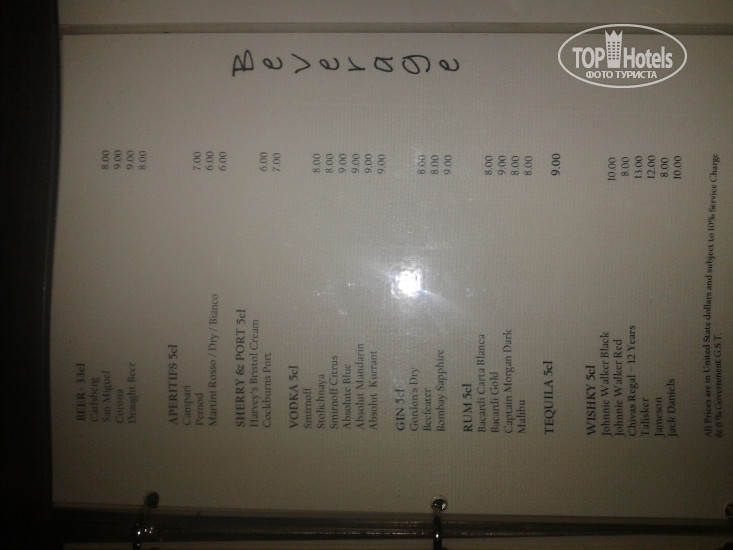 Beverage
BEER- 33cl
Carlsberg 8.00
San Miguel 9.00
Corona 9.00
Draught Beer 8.00
APERITIFS 5cl
Campari 7.00
Pernod 6.00
Martini Rosso / Dry / Bianco 6.00
SHERRY & PORT 5cl
Harvey's Bristol Cream 6.00
Cockburns Port 7.00
VODKA 5cl
Smirnoff 8.00
Stolichnaya 8.00
Smirnoff Citrus 9.00
Absolute Blue 9.00
Absolut Mandarin 9.00
Absolut Kurrant 9.00
GIN 5cl
Gordon's Dry 8.00
Beefeater 8.00
Bombay Sapphire 9.00
RUM 5cl
Bacardi Carta Blanca 8.00
Bacardi Gold 9.00
Captain Morgan Dark 8.00
Malibu 8.00
TEQUILA 5cl 9.00
WISHKY 5cl
Johnnie Walker Black 10.00
Johnnie Walker Red 8.00
Chivas Regal - 12 Years 13.00
Talisker 12.00
Jameson 8.00
Jack Daniels 10.00
All Prices are in United State dollars and subject to 10% Service Charge
& 8 % Government G.S.T.
TOP Hotels
ФОТО ТУРИСТА